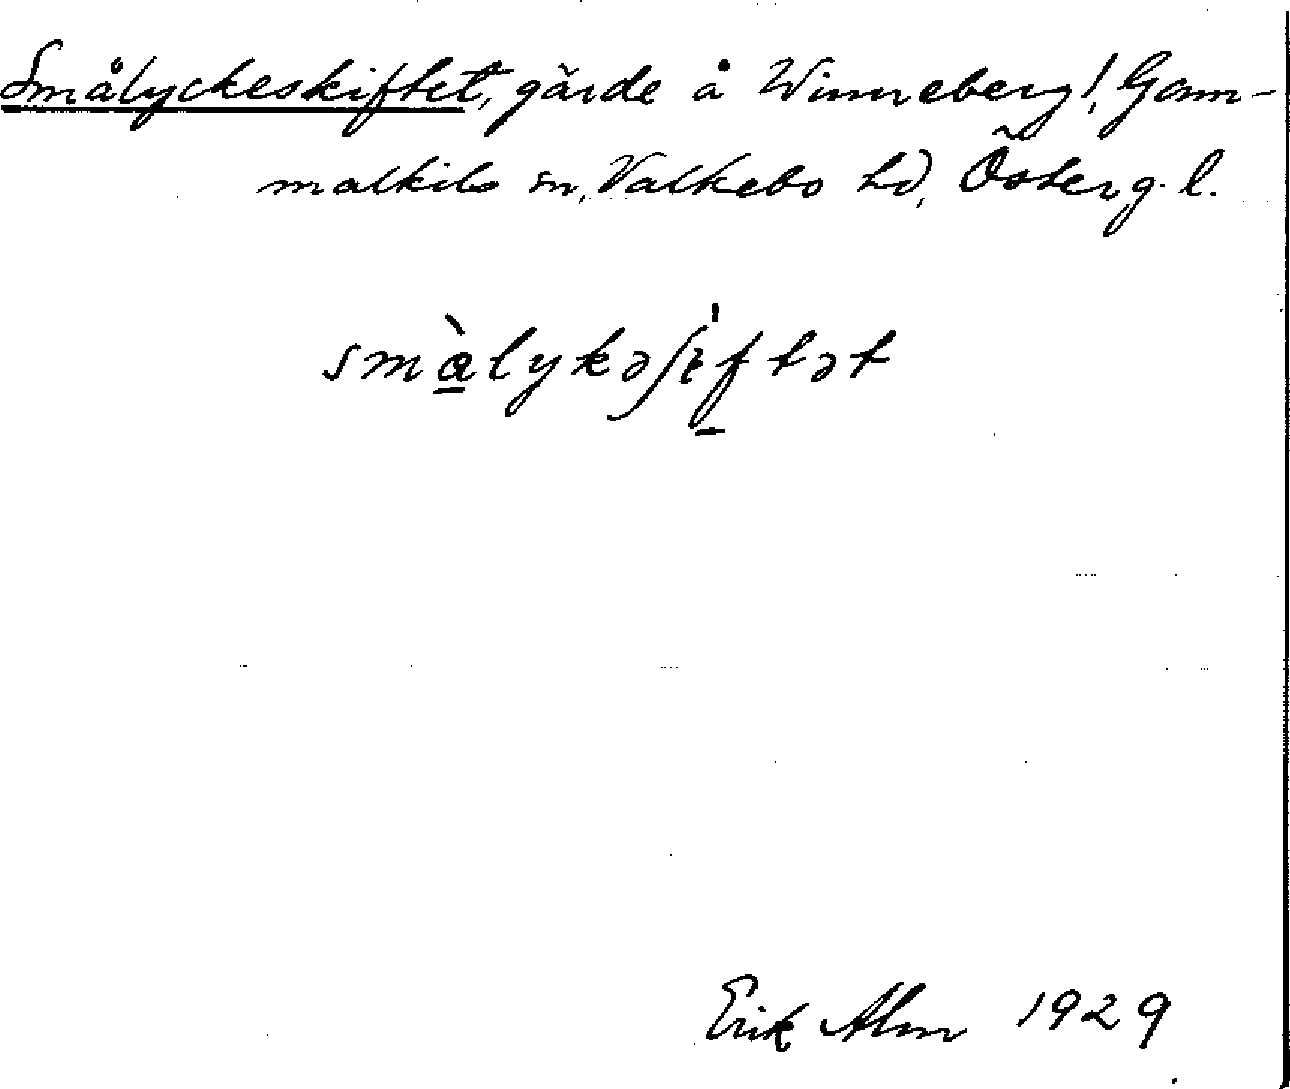 Smålyckeskiftet, gärde å Winneberg!, Gam-
malkils sn, Valkebo hd, Österg. l.
smàlykəʃiftət
Erik Alm 1929